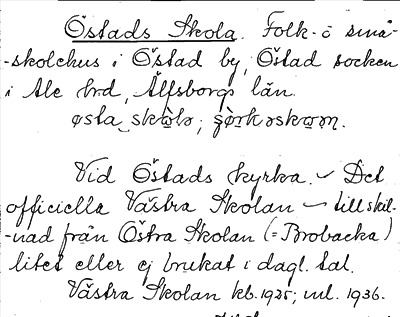 Östads Skola. Folk- o små-
-skolehus i Östad by, Östad socken
i Ale hrd, Älfsborgs län.
østa skola;
Vid Östads kyrka. Det
officiella Västra Skolan till skil-
-nad från Östra Skolan (= Brobacka)
litet eller ej brukat i dagl. tal.
Västra Skolan kb. 1925; uul. 1936.